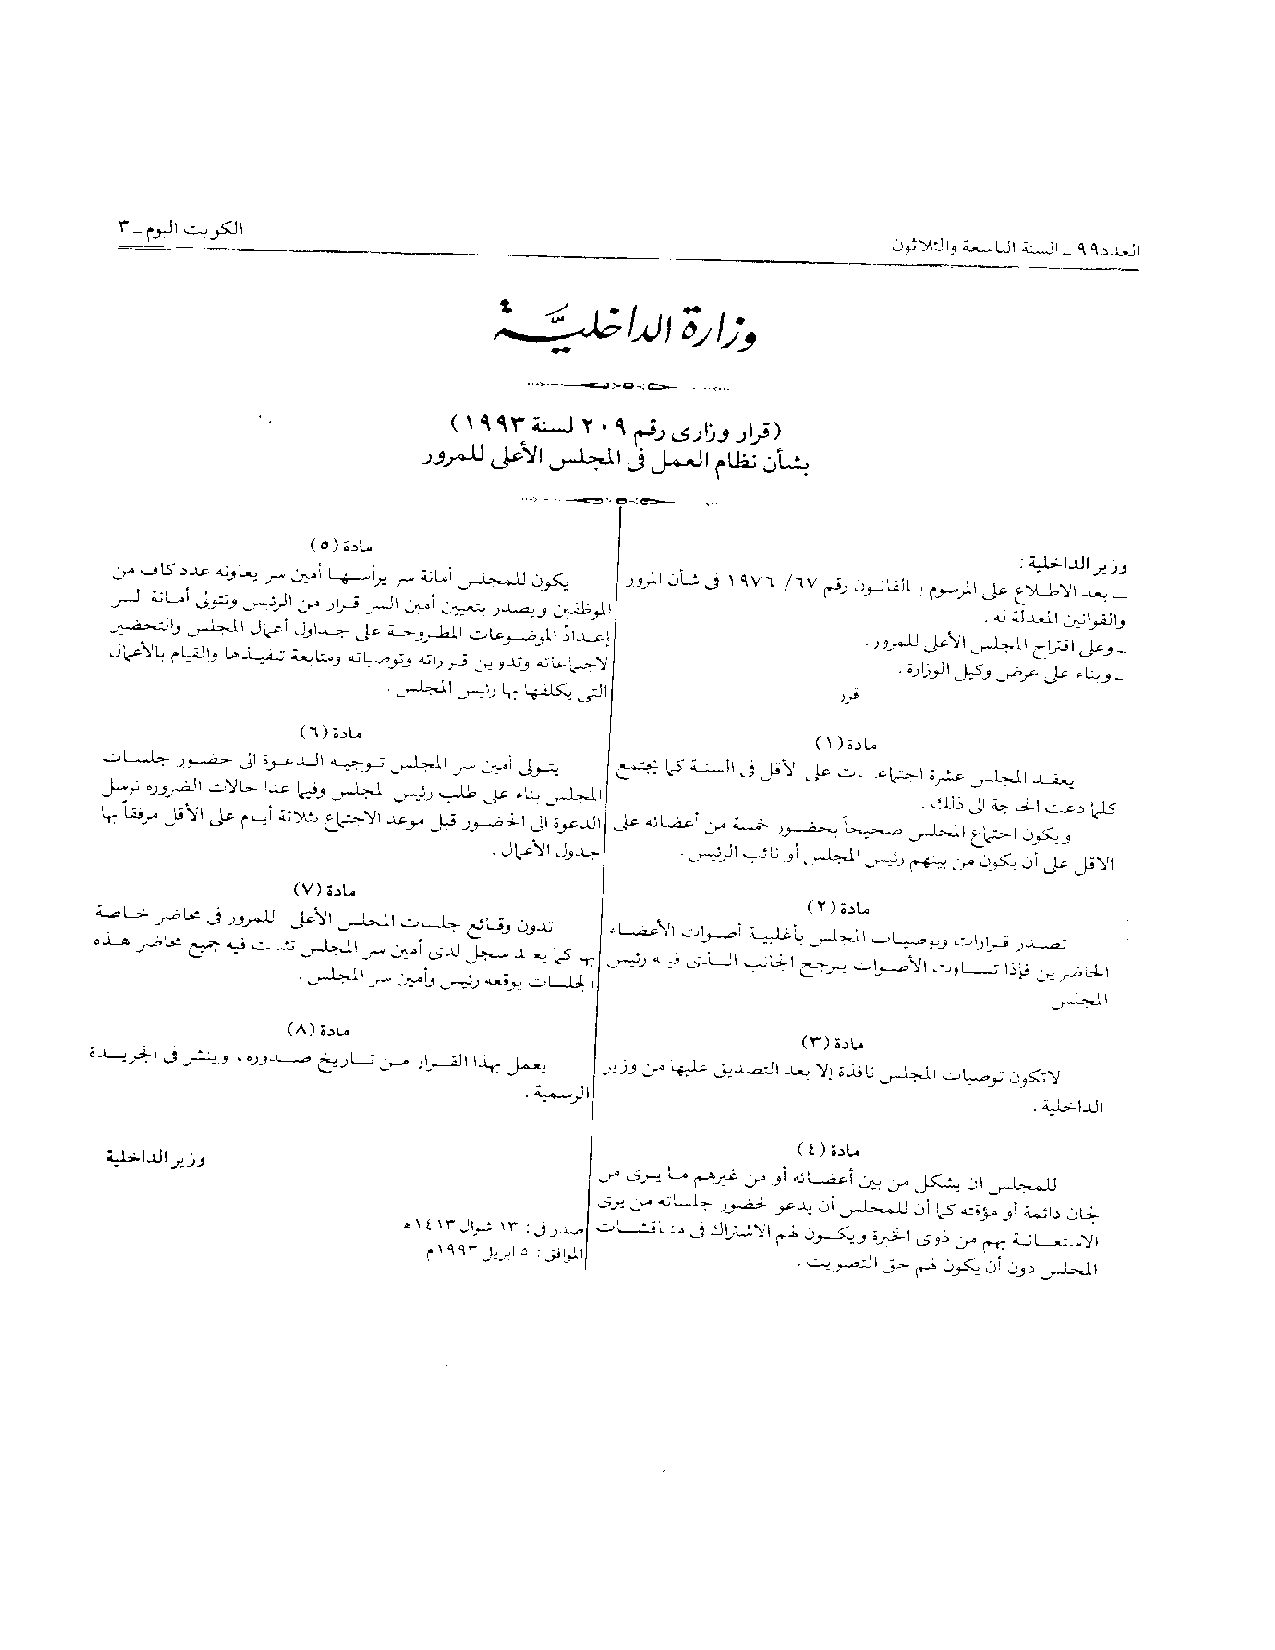 العدد ٩٩ ـ السنة التاسعة والثلاثون
الكويت اليوم ـ ٣
وزارة الداخليَّة
(قرار وزارى رقم ٢٠٩ لسنة ١٩٩٣)
بشأن نظام العمل فى المجلس الأعلى للمرور
وزير الداخلية :
ـ بعد الاطلاع على المرسوم بالقانون رقم ٦٧/ ١٩٧٦ فى شأن المرور
والقوانين المعدلة له .
ـ وعلى اقتراح المجلس الأعلى للمرور .
ـ وبناء على عرض وكيل الوزارة .
قرر
مادة (١)
يعقد المجلس عشرة اجتماعات على الأقل فى السنة كما يجتمع
كلما دعت الحاجة الى ذلك .
ويكون اجتماع المجلس صحيحاً بحضور خمسة من أعضائه على
الاقل على أن يكون من بينهم رئيس المجلس أو نائب الرئيس .
مادة (٢)
تصدر قرارات وتوصيات المجلس بأغلبية أصوات الأعضاء
الحاضرين فإذا تساوت الأصوات يرجع الجانب الذى فيه رئيس
المجلس
مادة (٣)
لاتكون توصيات المجلس نافذة إلا بعد التصديق عليها من وزير
الداخلية .
مادة (٤)
للمجلس ان يشكل من بين أعضائه أو من غيرهم ما يرى من
لجان دائمة أو مؤقته كما أن للمجلس أن يدعو لحضور جلساته من يرى
الاستعانة بهم من ذوى الخبرة ويكون لهم الاشتراك فى مناقشات
المجلس دون أن يكون لهم حق التصويت .
مادة (٥)
يكون للمجلس أمانة سر يرأسها أمين سر يعاونه عدد كاف من
الموظفين ويصدر بتعيين أمين السر قرار من الرئيس وتتولى أمانة السر
إعداد الموضوعات المطروحة على جداول أعمال المجلس والتحضير
لاجتماعاته وتدوين قرراته وتوصياته ومتابعة تنفيذها والقيام بالأعمال
التى يكلفها بها رئيس المجلس .
مادة (٦)
يتولى أمين سر المجلس توجيه الدعوة الى حضور جلسات
المجلس بناء على طلب رئيس المجلس وفيما عدا حالات الضرورة ترسل
الدعوة الى الحضور قبل موعد الاجتماع بثلاثة أيام على الأقل مرفقاً بها
جدول الأعمال .
مادة (٧)
تدون وقائع جلسات المجلس الأعلى للمرور فى محاضر خاصة
بها كما يعد سجل لدى أمين سر المجلس تثبت فيه جميع محاضر هذه
الجلسات يوقعه رئيس وأمين سر المجلس .
مادة (٨)
يعمل بهذا القرار من تاريخ صدوره ، وينشر فى الجريدة
الرسمية .
وزير الداخلية
صدر فى : ١٣ شوال ١٤١٣ ه
الموافق : ٥ ابريل ١٩٩٣م